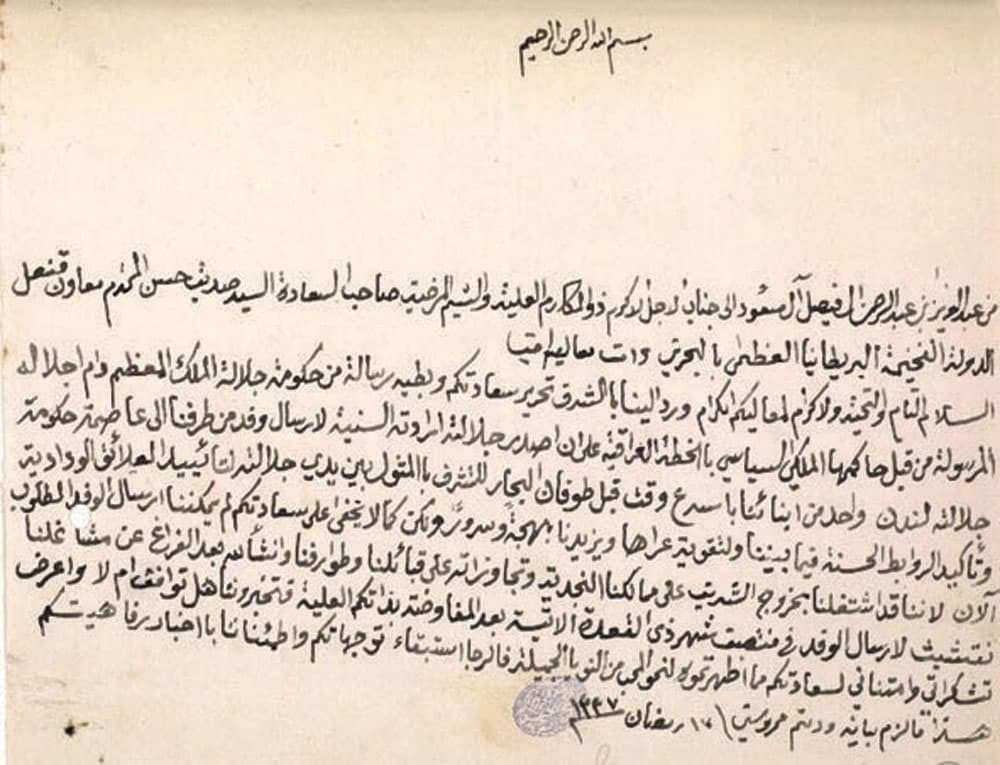 بسم الله الرحمن الرحيم
من عبد العزيز بن عبد الرحمن ال فيصل آل سعود الى جناب الاجل الاكرم ذو المكارم العلية والشيم المرضية صاحب السعادة السيد صديق حسن المحترم معاون قنصل
الدولة الفخيمة البريطانيا العظمى بالبحرين دامت معاليه امين
السلام التام والتحية والاكرام لمعاليكم الكرام ورد الينا بالشرف تحرير سعادتكم وبطيه رسالة من حكومة جلالة الملك المعظم دام اجلاله
المرسولة من قبل حاكمها الملكي السياسي بالخطة العراقية على ان اصدر جلالته ارادته السنية لارسال وفد من طرفنا الى عاصمة حكومة
جلالته لندن واحد من ابنائنا باسرع وقت قبل طوفان البحار للتشرف بالمثول بين يدي جلالته لتائييد العلائق الودادية
وتأكيد الروابط الحسنة فيما بيننا ولتقوية عراها ويزيدنا بهجة وسرورًا ولكن كما لا يخفى على سعادتكم لم يمكننا ارسال الوفد المطلوب
الآن لاننا قد اشتغلنا بخروج الشريف على ممالكنا النجدية وتجاوزاته على قبائلنا وطوارفنا وانشأ الله بعد الفراغ عن مشاغلنا
نتشبث لارسال الوفد في منتصف شهر ذي القعدة الاتية بعد المفاوضة بذاتكم العلية فتخبرونا هل توافق ام لا واعرض
تشكراتي وامتناني لسعادتكم ما اظهرتموه لنحو المحب من النوايا الجميلة فالرجا استبقاء توجهاتكم واطمئناننا باخبار رفاهيتكم
هذا ما لزم بيانه ودمتم محروسين ١٧ رمضان ١٣٣٧